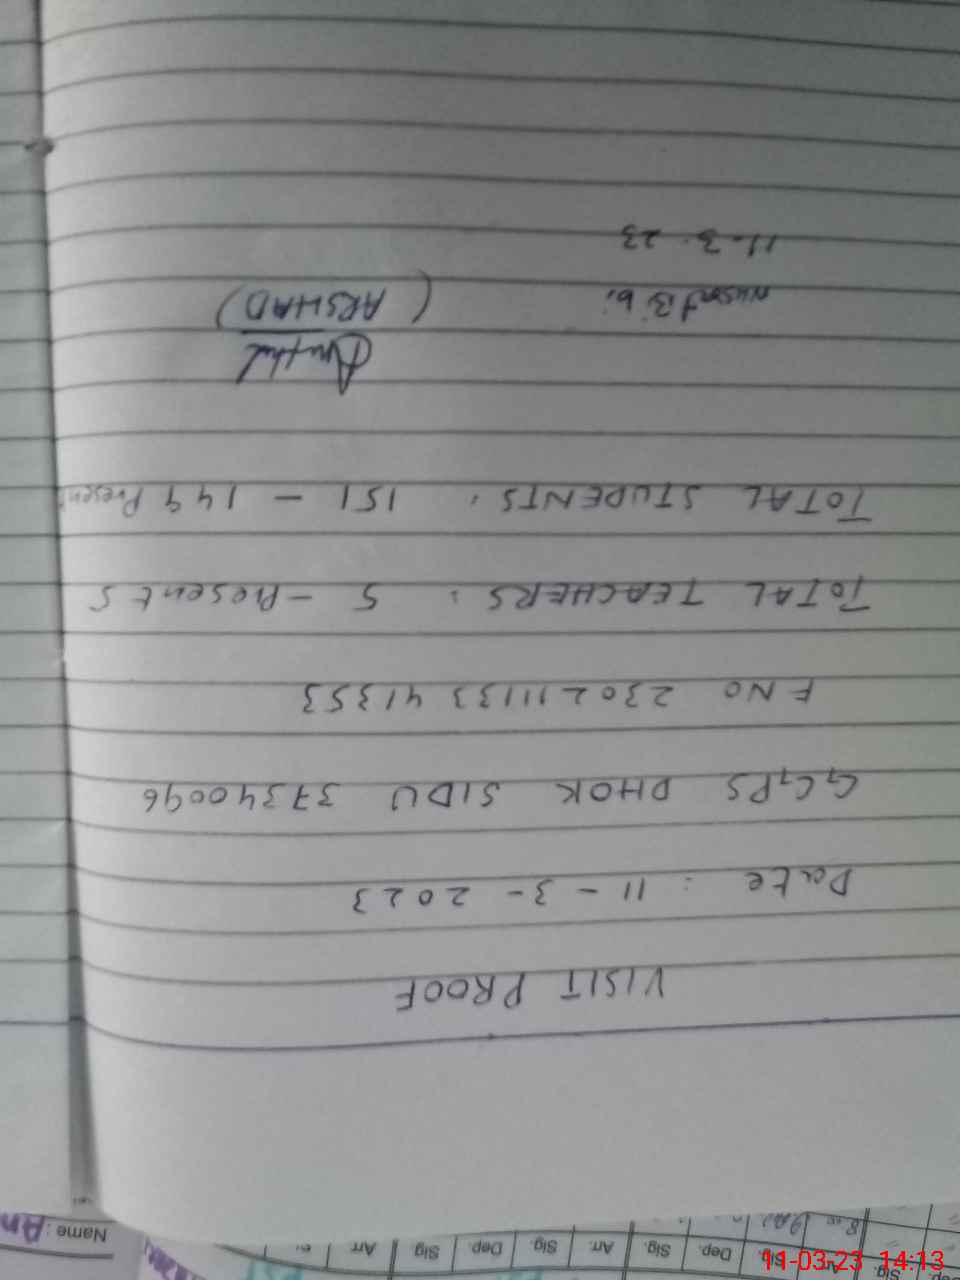 VISIT PROOF
Date : 11 - 3 - 2023
GGPS DHOK SIDU 37340096
F NO 23021113341353
TOTAL TEACHERS : 5 - Present 5
TOTAL STUDENTS : 151 - 149 Present
(ARSHAD)
Bibi
11-3-23
Name : An
Arr. Sig. Dep. Sig. Arr. Sig. Dep. Sig. Arr.
11-03-23 14:13